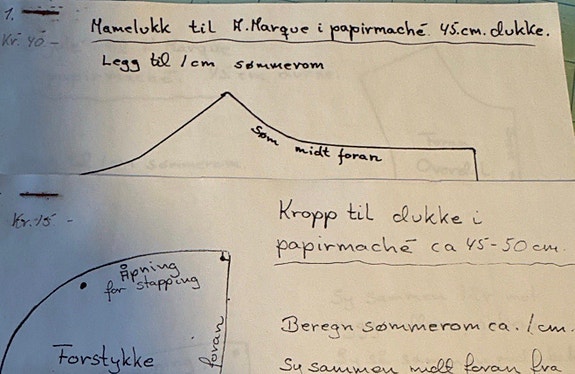 1.
Mamelukk til A. Marque i papirmaché 45.cm. dukke.
Kr. 40 -
Legg til 1 cm sømmerom
Søm midt foran
Kr. 15 -
Kropp til dukke i
papirmaché ca 45-50 cm.
Åpning
for stapping
foran
Forstykke
Beregn sømmerom ca. 1 cm.
Sy sammen midt foran fra